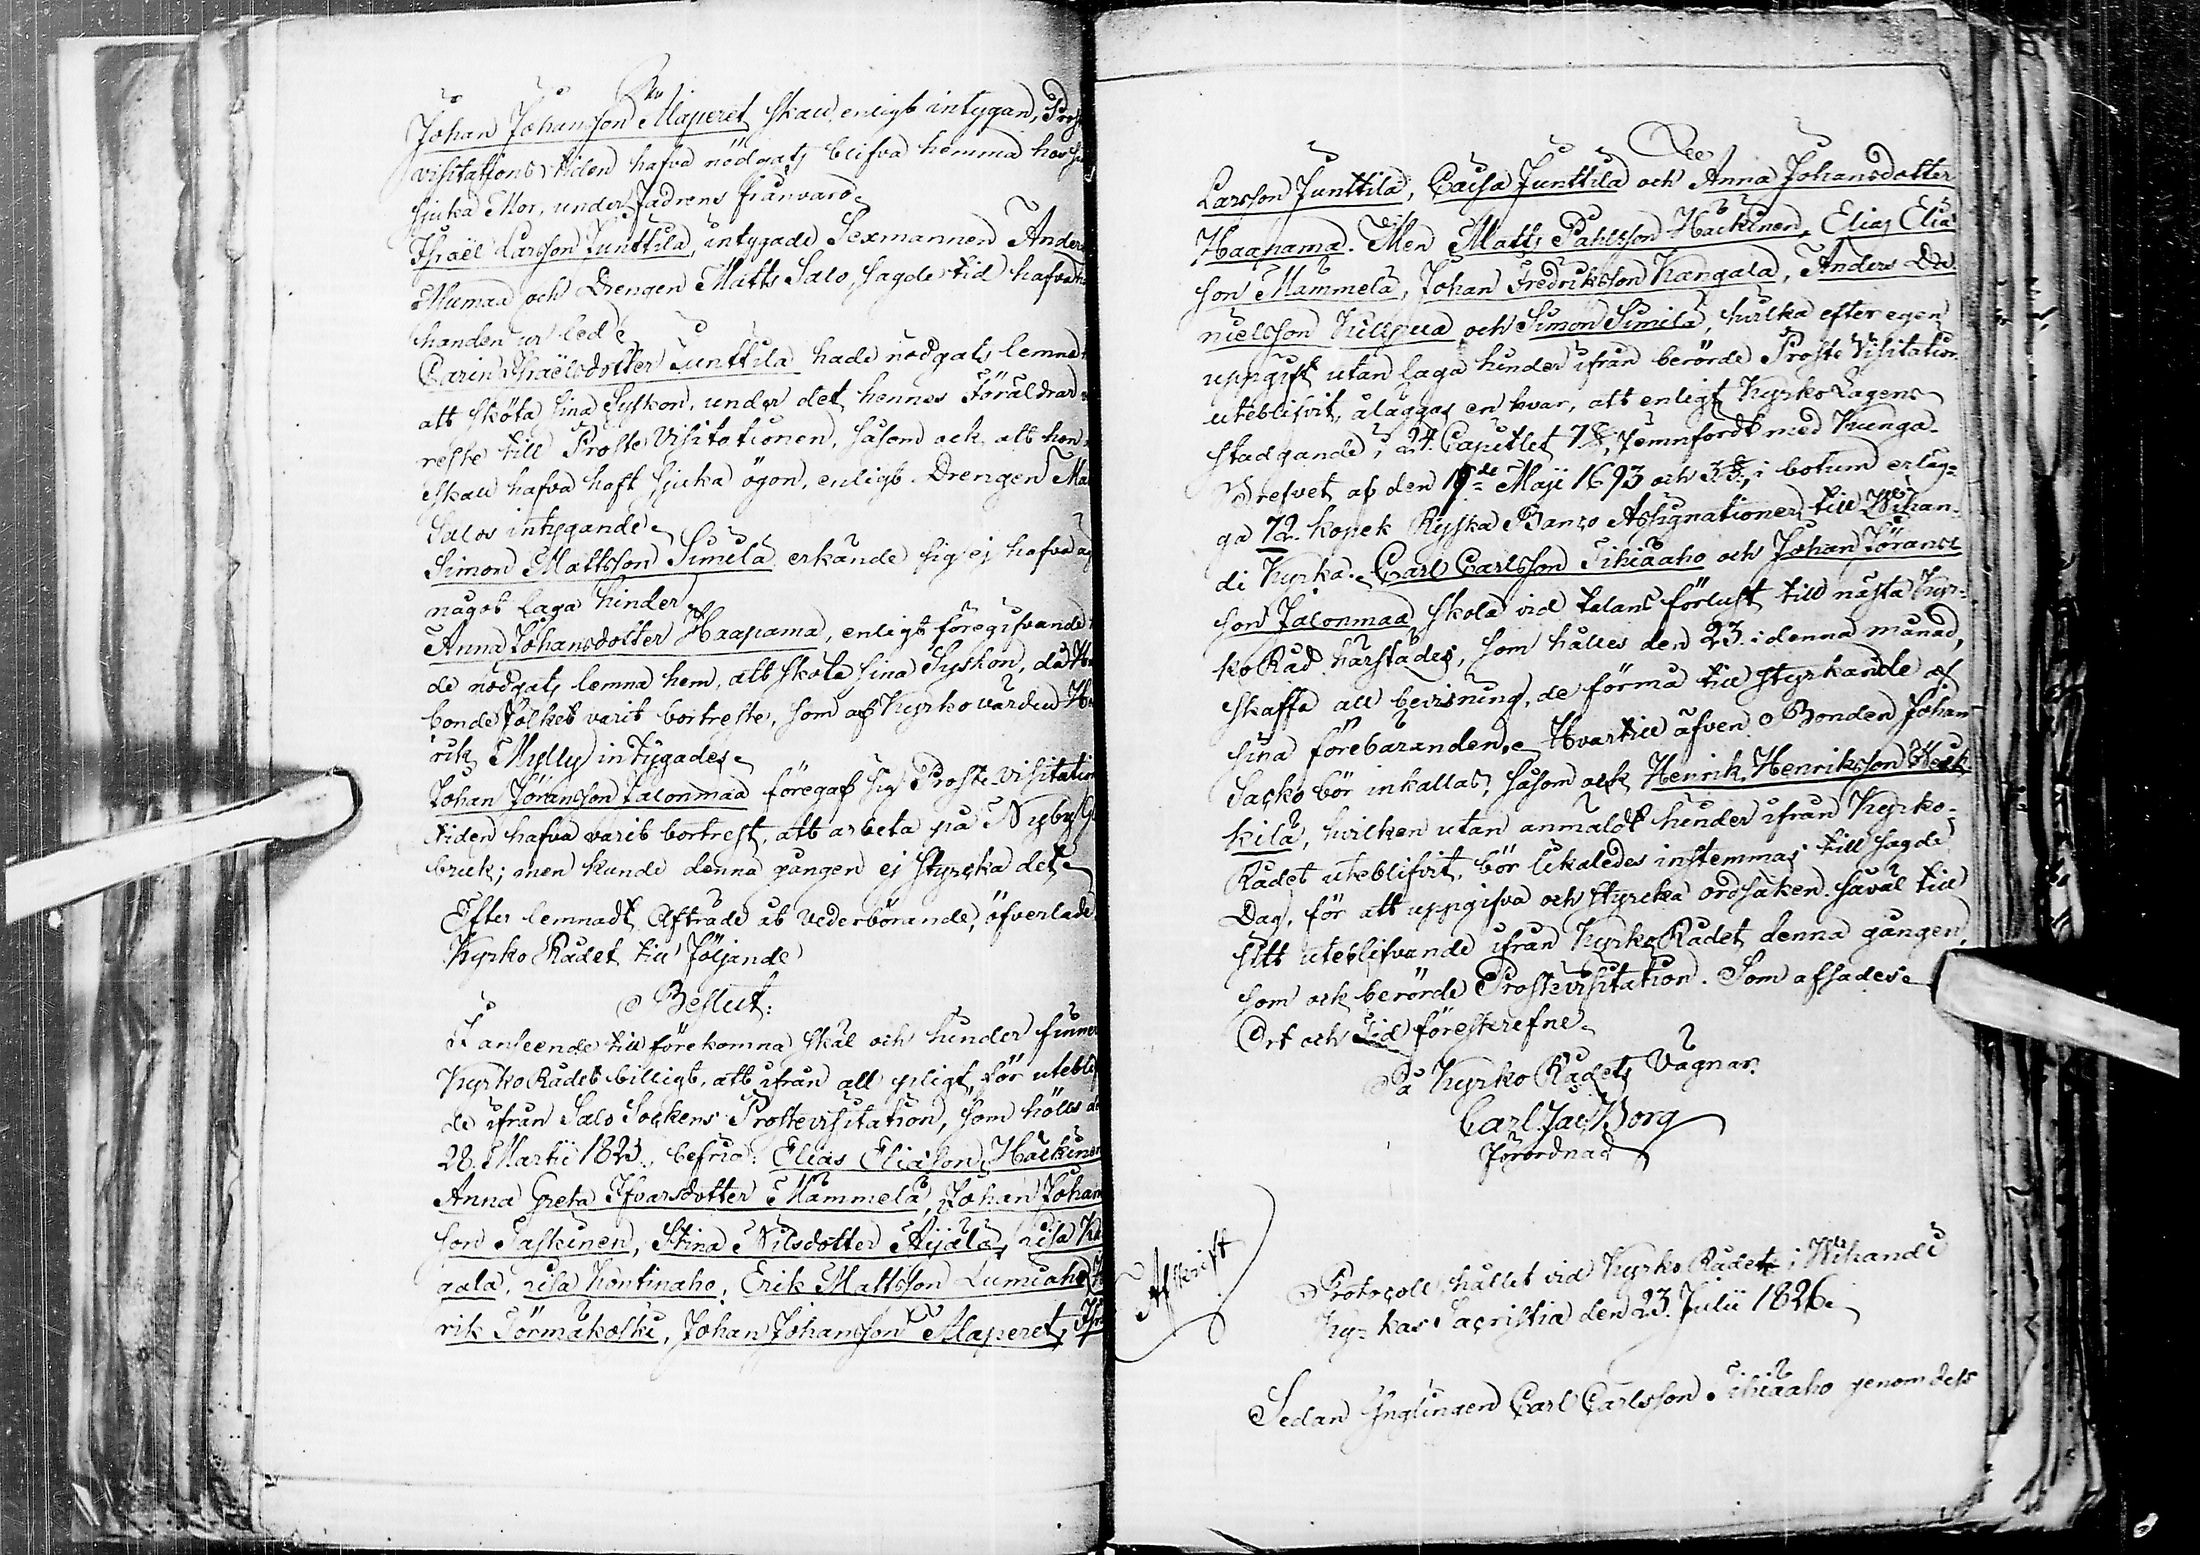 Johan Johansson Maperet skall, enligt intygan, Prost
visitations tiden hafva nödgats blifva hemma hos sin
sjuka Mor, under Fadrens frånvaro.
Israël Larsson Junttila, intygade Sexmannen Anders
och Drengen Matts Salo, sagde tid hafva
handen ur led.
Carin Israëlsdotter Junttila hade nödgats lemna
att sköta sina Syskon, under det hennes Föräldrar
reste till Proste Visitationen, såsom ock att hon
skall hafva haft sjuka ögon, enligt Drengen Mat
Salos intygande.
Simon Mattsson Simelä erkände sig ej hafva
något laga hinder.
Anna Johansdotter Haapama, enligt föregifvande
de nödgats lemna hem, att sköta sina Syskon, då
bonde folket varit bortreste, som af Kyrko värden Hen
rik Mylly intygades.
Johan Jöransson Jalonmaa föregaf sig Proste visitation
tiden hafva varit bortrest, att arbeta på Nyby Glas
bruk; men kunde denna gången ej styrcka det.
Efter lemnadt Afträde åt vederbörande, öfverlade
Kyrko Rådet till följande
Beslut:
I anseende till förekomna skäl och hinder finner
Kyrko Rådet billigt, att ifrån all pligt, för utebli
de ifrån Salo Sockens Prostevisitation, som hölls d
28. Martii 1823., befria: Elias Eliasson Häckinen
Anna Greta Ifvarsdotter Mämmelä, Johan Johan
son Paskinen, Stina Nilsdotter Äijälä, Lisa Ka
gala, Lisa Kontinaho, Erik Mattsson Lumiaho
rik Törmäkoski, Johan Johansson Maperet, Isr
Larsson Junttila, Caisa Junttila och Anna Johansdotter
Haapama. Men Matts Pahlsson Häckinen, Elias Elia
son Mämmelä, Johan Fredriksson Kangala, Anders Da
nielsson Killpua och Simon Simelä, hvilka efter egen
uppgift utan laga hinder ifrån berörde Proste Visitation
uteblifvit, åläggas en hvar, att enligt Kyrko Lagens
stadgande i 24. Capitlet 7 §, jemnfördt med Kunga-
Brefvet af den Maji 1693 och i botum erläg-
ga 72. kopek Ryska Banco Assignationer till Wihan-
di Kyrka. Carl Carlsson Tihiäaho och Johan Jörans
son Jalonmaa skola vid talans förlust till nästa Kyr-
ko Råd härstädes, som hålles den 23. i denna månad,
skaffa all bevisning, de förmå till styrkande af
sina förebäranden. Hvartill äfven Bonden Johan
Sacko bör inkallas, såsom ock Henrik Henriksson Weik
kilä, hvilken utan anmäldt hinder ifrån Kyrko-
Rådet uteblifvit, bör likaledes instemmas till sagde
Dag, för att uppgifva och styrcka ordsaken såväl till
sitt uteblifvande ifrån Kyrko Rådet denna gången,
som ock berörde Prostevisitation. Som afsades.
Ort och Tid föreskrefne.
På Kyrko Rådets Vägnar
Carl Jac Borg
Förordnad
Afskrift
Protocoll, hållet vid Kyrko Rådet i Wihandi
Kyrkas Sacristia den 23. Julii 1826.
Sedan Ynglingen Carl Carlsson Tihiäaho genom dess